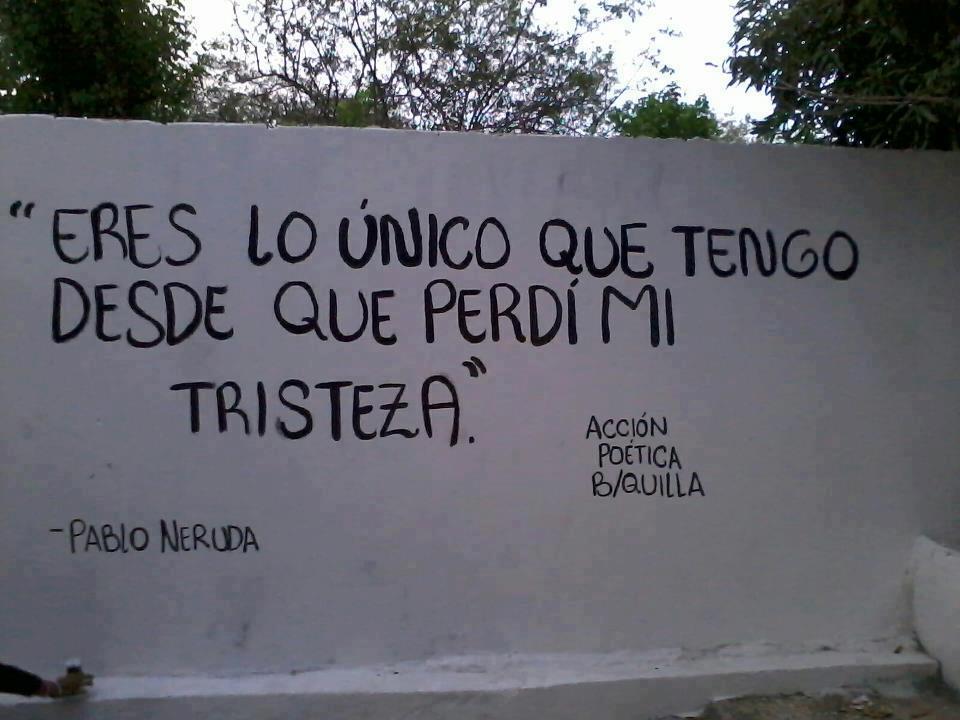 “ERES LO ÚNICO QUE TENGO
DESDE QUE PERDÍ MI
TRISTEZA.”
ACCIÓN
POÉTICA
B/QUILLA
-PABLO NERUDA